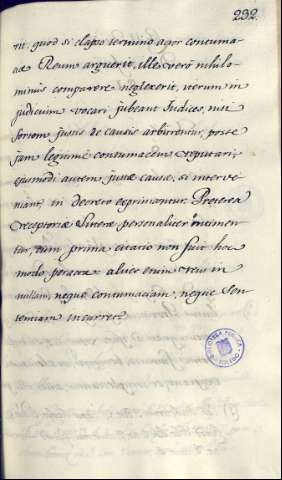 232.
tit. quod si elapso termino actor contuma-
ciae Reum arguerit, ille verò nihilo-
minùs comparere neglexerit, iterum in
judicium vocari jubeant Judices, nisi
fortem justis de causis arbitrentur, posse
jam legitimè contumacem reputari;
ejusmodi autem justae causae, si interve-
niant, in decreto exprimantur. Preterea
receptoriae Literae personaliter intimen-
tur, cum prima citatio non fuit hoc
modo peracta aliter enim reus in
nullam, neque contumaciam, neque Sen-
tentiam incurret.
TOLEDO